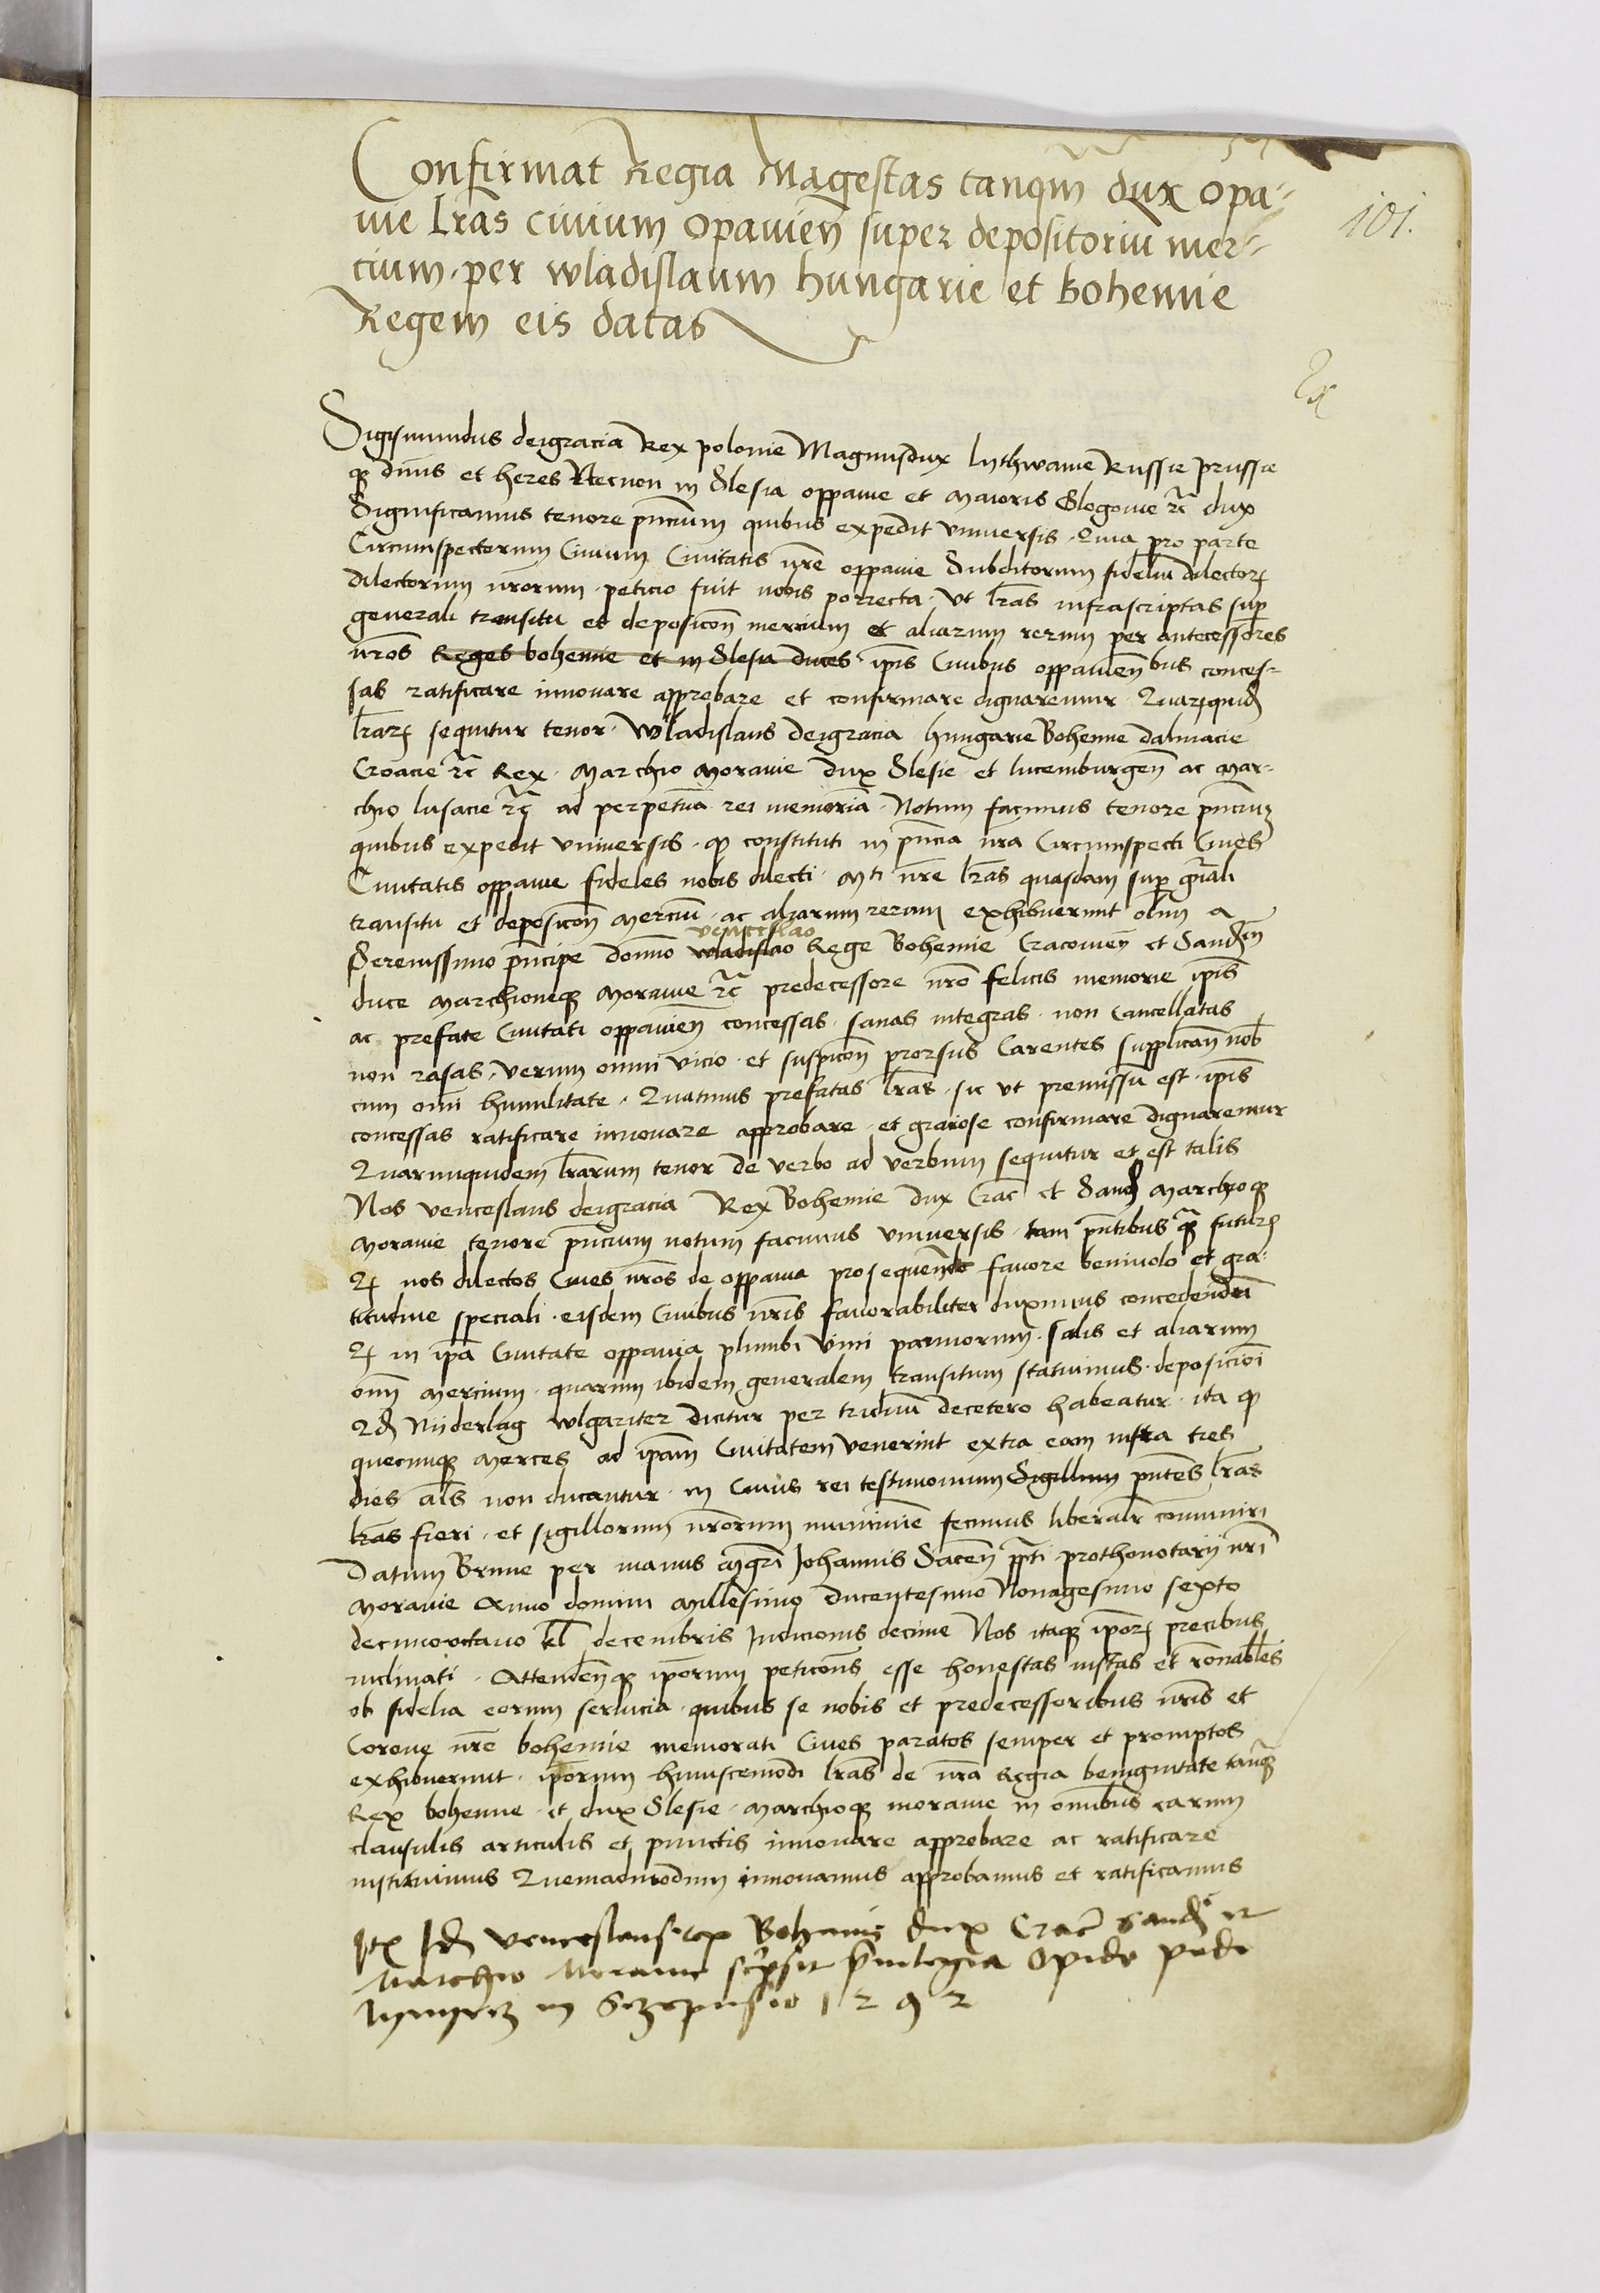 Confirmat Regia Magestas tanqm dux Opa-
uie lras ciuium Opauien super depositoriu mer-
cium per wladislaum hungarie et bohemie
Regem eis datas
101.
Sigismundus deigracia Rex polonie Magnusdux lythwanie Russie prussie
qz dnus et heres Necnon in Slesia oppauie et Maioris Glogouie rc dux
Significamus tenore pncium quibus expedit vniuersis. Quia pro parte
Circumspectorum Ciuium Ciuitatis nre oppauie Subditorum fideliu dilector
dilectorum nrorum peticio fuit nobis porrecta. Vt lras infrascriptas sup
generali transitu et deposicon mercium et aliarum rerum per antecessores
nros Reges bohemie et in Slesia duces ipis Ciuibus oppauien bus conces-
sas ratificare innouare approbare et confirmare dignaremur. Quarquid
lrar sequitur tenor. Wladislaus deigracia hungarie Bohemie dalmacie
Croacie rc Rex. Marchio Morauie dux Slesie et lucemburgen ac Mar-
chio lusacie rc ad perpetua rei memoria. Notum facimus tenore pnciu
quibus expedit vniuersis. qp constituti in pncia nra Circumspecti Ciues
Ciuitatis oppauie fideles nobis dilecti. Mti nre lras quasdam sup gnali
transitu et deposicon Merciu. ac aliarum rerum exhibuerunt olim a
venceslao
Serenissimo principe domno wladislao Rege Bohemie Cracouien et Sandm
duce Marchioneqz Morauie rc predecessore nro felicis memorie ipis
ac prefate Ciuitati oppauien concessas. sanas integras. non Cancellatas
non rasas. verum omni vicio. et suspicon prorsus Carentes supplican nob
cum omi humilitate. Quatinus prefatas lras. sic vt premissu est. ipis
concessas ratificare innouare approbare et graciose confirmare dignaremur
Quarumquidem lrarum tenor de verbo ad verbum sequitur et est talis
Nos venceslaus deigracia Rex Bohemie dux Crac et Sand Marchioqz
Morauie tenore pncium notum facimus vniuersis. tam pntibus qz futur
Q nos dilectos Ciues nros de oppauia prosequende fauore beniuolo et gra-
titudine speciali. eisdem Ciuibus nris fauorabiliter duximus concedendu
Q in ipa Ciuitate oppauia plumbi vini pannorum. salis et aliarum
omi mercium. quarum ibidem generalem transitum statuimus. deposicioni
Qd Niderlag wlgariter dicitur per triduu decetero habeatur. ita qp
quecunqz merces ad ipam Ciuitatem venerint extra eam infra tres
dies als non ducantur. in Cuius rei testimonium Sigillum pntes lras
lras fieri. et sigillorum nrorum munimine fecimus liberalr communiri
Datum Brune per manus Mgri Johannis Sacen ppti prothonotarij nri
Morauie Anno domini Millesimo ducentesimo Nonagesimo sexto
decimooctauo kl decembris Indicionis decime Nos itaqz ipor precibus
inclinati. Attendenqz iporum peticons esse honestas iustas et ronables
ob fidelia eorum seruicia. quibus se nobis et predecessoribus nris et
Corone nre bohemie memorati Ciues paratos semper et promptos
exhibuerunt. iporum huiuscemodi lras de nra Regia benignitate tanqz
Rex bohemie et dux Slesie. Marchioqz morauie in omibus earum
clausulis articulis et punctis innouare approbare ac ratificare
instituimus Quemadmodum innouamus approbamus et ratificamus
Id venceslaus rex Bohemie dux Crac sand et
Marchio Morauie priuilegia opido
in 1292